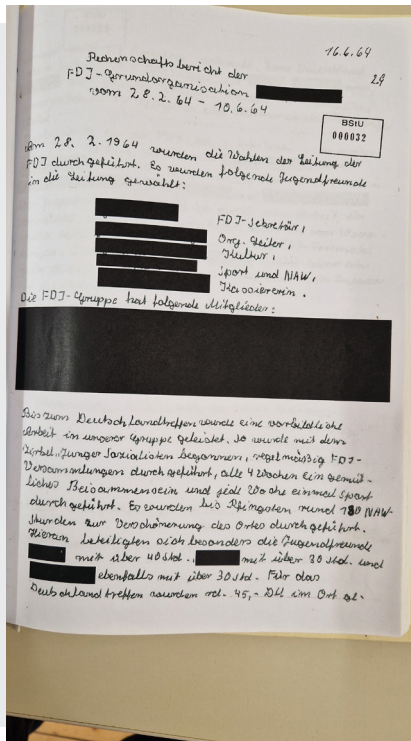 16.6.64
29
Rechenschaftsbericht der
FDJ-Grundorganisation
vom 28.2.64 - 10.6.64
BStU
000032
Am 28. 2.1964 wurden die Wahlen der Leitung der
FDJ durchgeführt. Es wurden folgende Jugendfreunde
in die Leitung gewählt:
FDJ-Sekretär,
Org. Leiter,
Kultur,
Sport und NAW,
Kassiererin.
Die FDJ-Gruppe hat folgende Mitglieder:
Bis zum Deutschlandtreffen wurde eine vorbildliche
Arbeit in unserer Gruppe geleistet. So wurde mit dem
Zirkel "Junger Sozialisten" begonnen, regelmässig FDJ-
Versammlungen durchgeführt, alle 4 Wochen ein gemüt-
liches Beisammensein und jede Woche einmal Sport
durchgeführt. Es wurden bis Pfingsten rund 180 NAW-
Stunden zur Verschönerung des Ortes durchgeführt.
Hieran beteiligten sich besonders die Jugendfreunde
mit über 40 Std., mit über 30 Std. und
ebenfalls mit über 30 Std. Für das
Deutschlandtreffen wurden rd. 45,- DM im Ort ge-